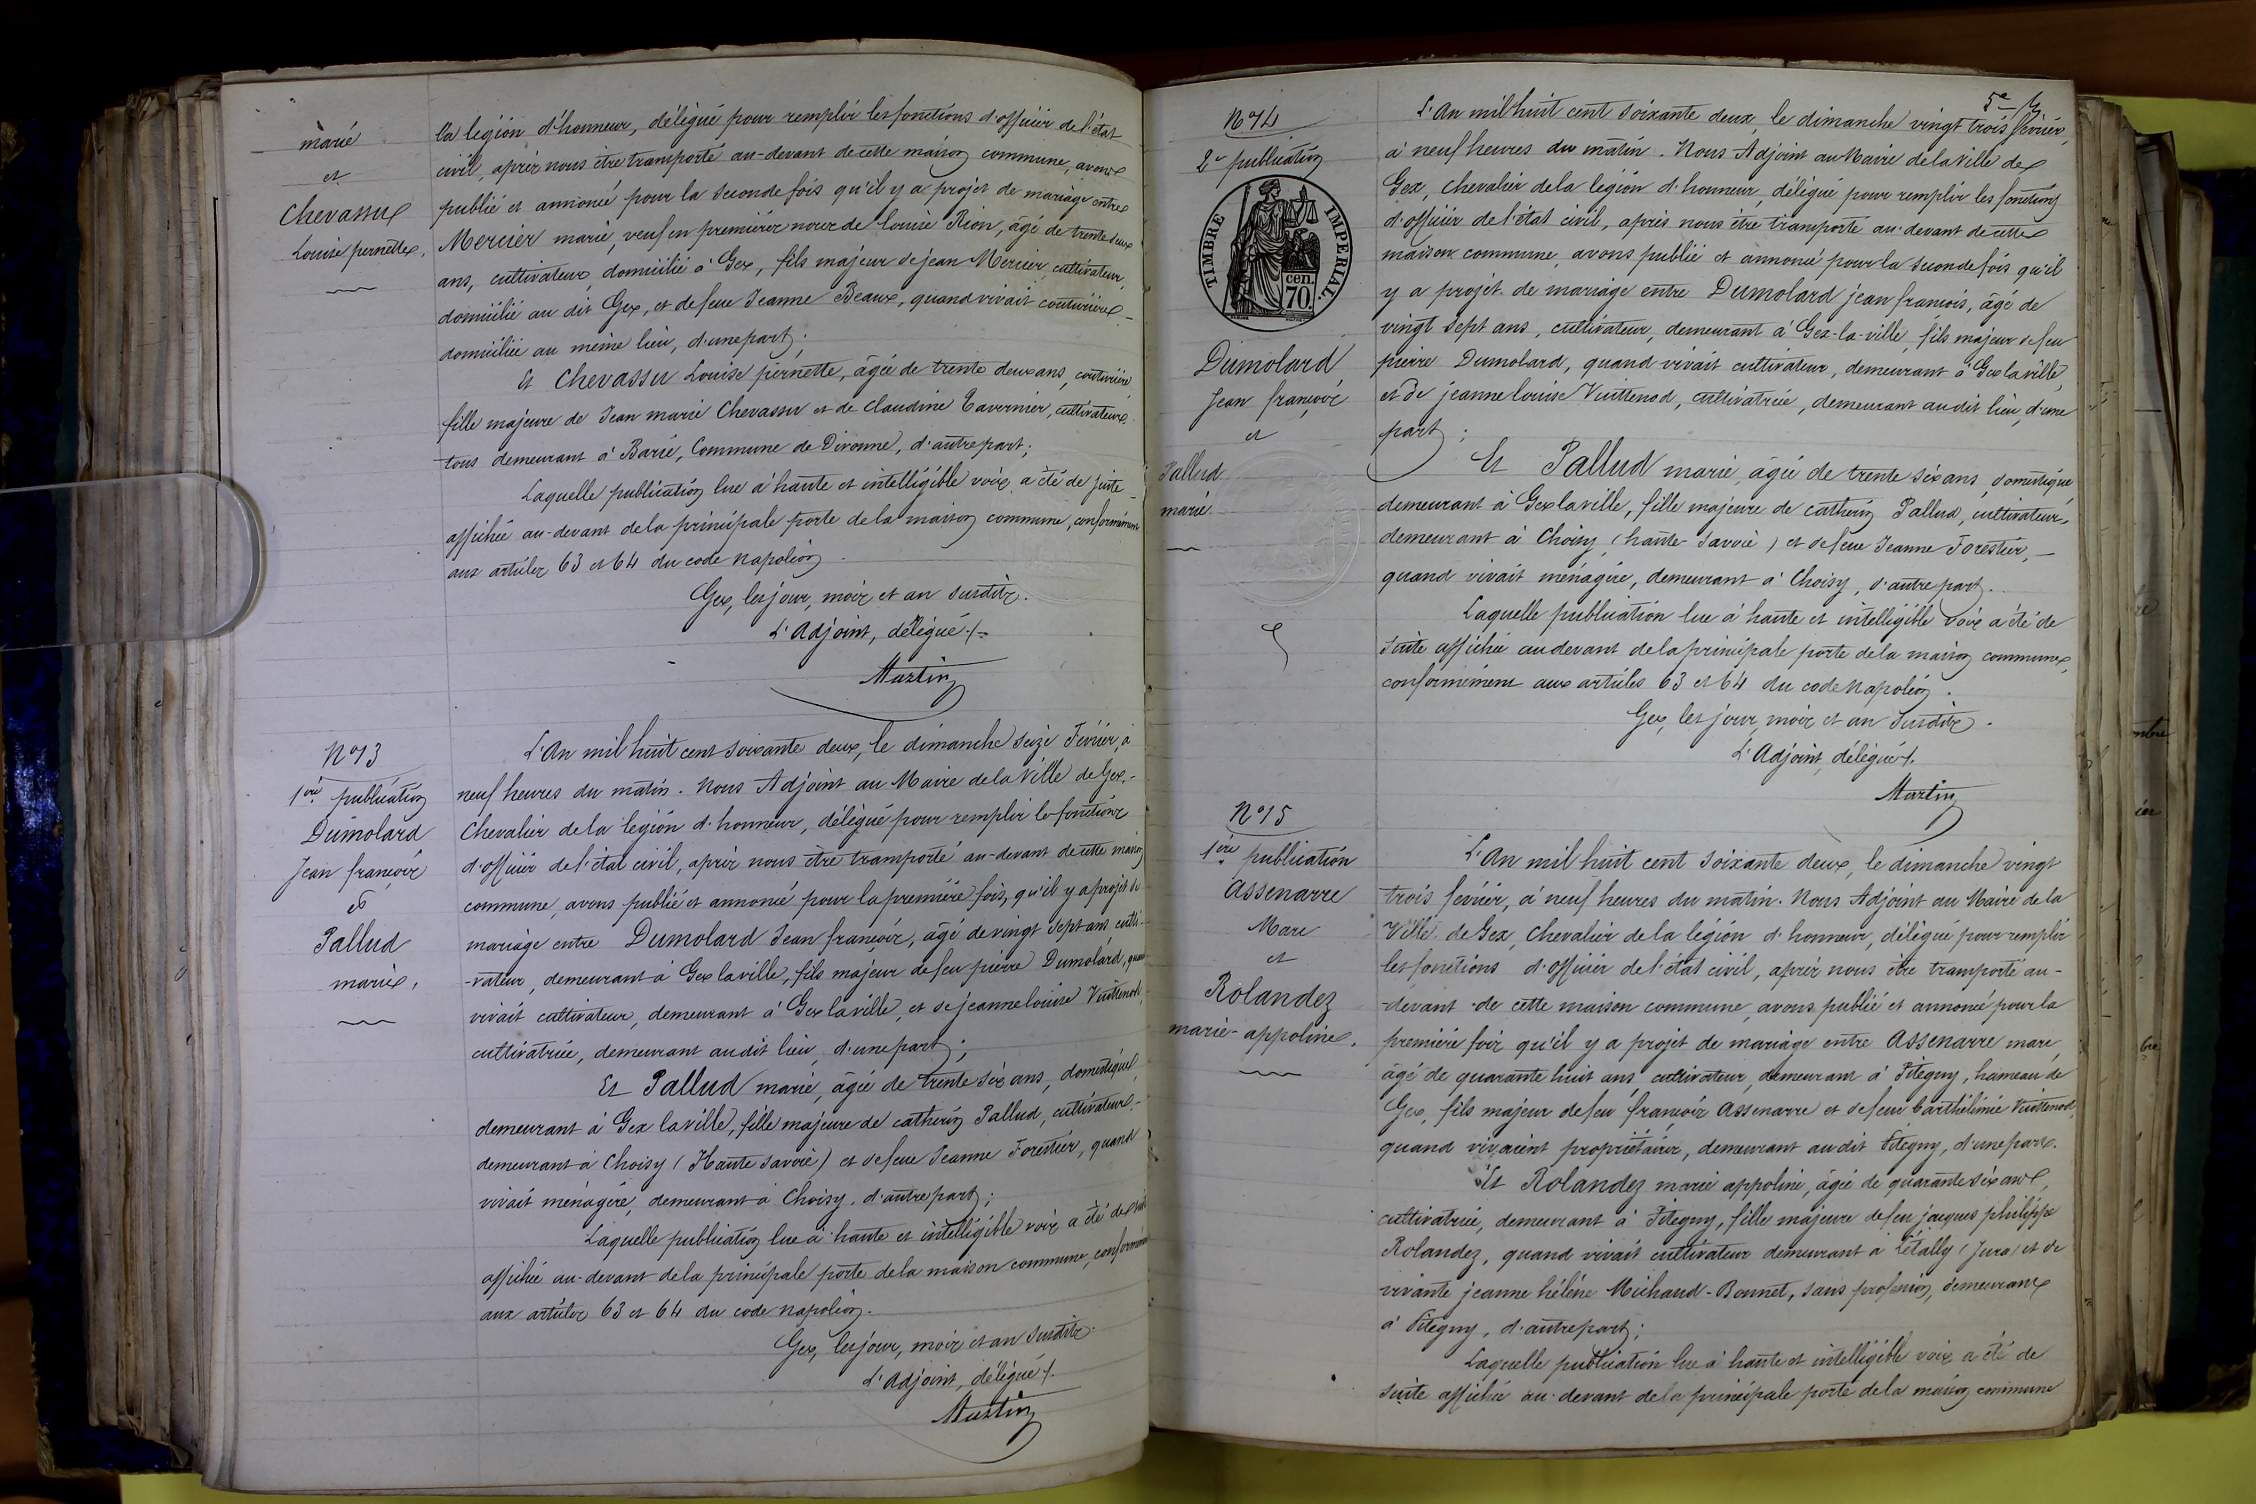 marié
et
Chevassu
Louise pernette.
la légion d'honneur, délégué pour remplir les fonctions d'officier de l'état
civil, après nous être transporté au-devant de cette maison commune, avons
publié et annoncé pour la seconde fois qu'il y a projet de mariage entre
Mercier marie, veuf en premières noces de Louise Rion, âgé de trente deux
ans, cultivateur, domicilié à Gex, fils majeur de jean Mercier, cultivateur,
domicilié au dit Gex, et de feue Jeanne Beaux, quand vivait couturière
domiciliée au même lieu, d'une part;
Et Chevassu Louise pernette, âgée de trente deux ans, couturière
fille majeure de Jean marie Chevassu et de Claudine Tavernier, cultivateurs
tous demeurant à Barié, Commune de Divonne, d'autre part;
Laquelle publication lue à haute et intelligible voix a été de suite
affichée au-devant de la principale porte de la maison commune, conformément
aux articles 63 et 64 du code napoléon.
Gex, les jour, mois et an susdits.
L'Adjoint, délégué.
Martin
N° 13
1ère publication
Dumolard
Jean françois
et
Pallud
marie.
L'An mil huit cent soixante deux, le dimanche seize Février, à
neuf heures du matin. Nous Adjoint au Maire de la Ville de Gex,
Chevalier de la légion d'honneur, délégué pour remplir les fonctions
d'officier de l'état civil, après nous être transporté au-devant de cette maison
commune, avons publié et annoncé pour la première fois, qu'il y a projet de
mariage entre Dumolard Jean françois, âgé de vingt sept ans culti-
-vateur, demeurant à Gex la ville, fils majeur de feu pierre Dumolard, quand
vivait cultivateur, demeurant à Gex la ville, et de jeanne louise Vuittenod,
cultivatrice, demeurant au dit lieu d'une part;
Et Pallud marie, âgée de trente six ans, domestique,
demeurant à Gex la ville, fille majeure de catherin Pallud, cultivateur,
demeurant à Choisy (Haute Savoie) et de feue Jeanne Forestier, quand
vivait ménagère, demeurant à Choisy, d'autre part;
Laquelle publication lue à haute et intelligible voix a été de suite
affichée au-devant de la principale porte de la maison commune, conformément
aux articles 63 et 64 du code napoléon.
Gex, les jour, mois et an susdits.
L'Adjoint, délégué.
Martin
5e
N° 14
2e publication
TIMBRE IMPERIAL.
cen.
70
Dumolard
Jean françois
et
Pallud
marie.
L'An mil huit cent soixante deux, le dimanche vingt trois février,
à neuf heures du matin. Nous Adjoint au Maire de la Ville de
Gex, Chevalier de la légion d'honneur, délégué pour remplir les fonctions
d'officier de l'état civil, après nous être transporté au-devant de cette
maison commune, avons publié et annoncé pour la seconde fois qu'il
y a projet de mariage entre Dumolard jean françois, âgé de
vingt sept ans, cultivateur, demeurant à Gex-la-ville, fils majeur de feu
pierre Dumolard, quand vivait cultivateur, demeurant à Gex la ville,
et de jeanne louise Vuittenod, cultivatrice, demeurant au dit lieu, d'une
part;
Et Pallud marie, âgée de trente six ans, domestique
demeurant à Gex la ville, fille majeure de catherin Pallud, cultivateur,
demeurant à Choisy (haute-Savoie) et de feue Jeanne Forestier,
quand vivait ménagère, demeurant à Choisy, d'autre part.
Laquelle publication lue à haute et intelligible voix a été de
suite affichée au devant de la principale porte de la maison commune,
conformément aux articles 63 et 64 du code Napoléon.
Gex, les jour, mois et an susdits.
L'Adjoint, délégué.
Martin
N° 15
1ère publication
Assenarre
Marc
et
Rolandez
marie-appoline.
L'An mil huit cent soixante deux, le dimanche vingt
trois février, à neuf heures du matin. Nous Adjoint au Maire de la
Ville de Gex, Chevalier de la légion d'honneur, délégué pour remplir
les fonctions d'officier de l'état civil, après nous être transporté au-
-devant de cette maison commune, avons publié et annoncé pour la
première fois qu'il y a projet de mariage entre Assenarre marc,
âgé de quarante huit ans cultivateur, demeurant à Pitegny, hameau de
Gex, fils majeur de feu françois Assenarre et de feue Barthélimie Vuittenod,
quand vivaient propriétaires, demeurant au dit Pitegny, d'une part.
Et Rolandez marie appoline, âgée de quarante six ans,
cultivatrice, demeurant à Pitegny, fille majeure de feu jacques philippe
Rolandez, quand vivait cultivateur demeurant à Létally (Jura) et de
vivante jeanne hélène Michaud-Bonnet, sans profession, demeurant
à Pitegny, d'autre part;
Laquelle publication lue à haute et intelligible voix a été de
suite affichée au-devant de la principale porte de la maison commune